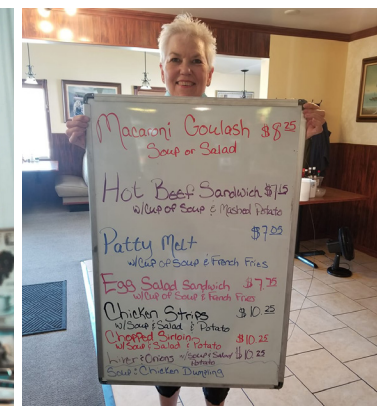 Macaroni Goulash $8.25
Soup or Salad
Hot Beef Sandwich $7.25
w/Cup of Soup & Mashed Potato
$7.05
Patty Melt
w/Cup of Soup & French Fries
Egg Salad Sandwich $7.75
w/Cup of Soup & French Fries
Chicken Strips $10.25
w/Soup & Salad & Potato
Chopped Sirloin $10.25
w/Soup & Salad & Potato
Liver & Onions w/Soup & Salad $10.25
Potato
Soup: Chicken Dumpling